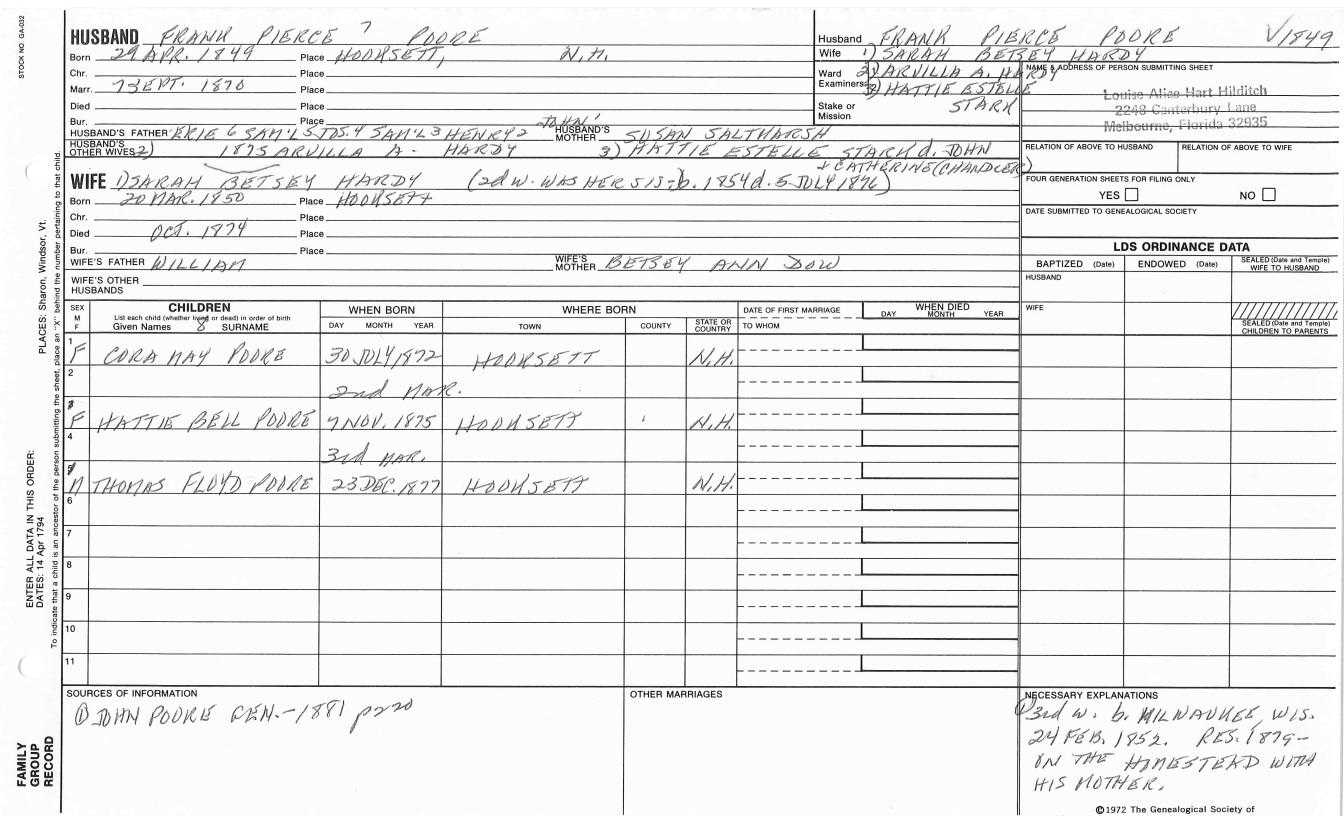 STOCK NO. GA-032
HUSBAND FRANK PIERCE 7 POORE
Born 29 APR. 1849 Place HOOKSETT, N.H.
Chr. Place
Marr. 7 SEPT. 1870 Place
Died Place
Bur. Place
HUSBAND'S FATHER ERIE 6 SAM'L 5 JOS. 4 SAM'L 3 HENRY 2 JOHN 1 HUSBAND'S MOTHER SUSAN SALTMARSH
HUSBAND'S OTHER WIVES 2) 1875 ARVILLA A. HARDY 3) HATTIE ESTELLE STARK d. JOHN
+ CATHERINE (CHANDLER)
Husband FRANK PIERCE POORE V1849
Wife 1) SARAH BETSEY HARDY
Ward Examiners 2) ARVILLA A. HARDY
3) HATTIE ESTELLE
Stake or Mission STARK
NAME & ADDRESS OF PERSON SUBMITTING SHEET
Louise Alice Hart Hilditch
2248 Canterbury Lane
Melbourne, Florida 32935
RELATION OF ABOVE TO HUSBAND RELATION OF ABOVE TO WIFE
FOUR GENERATION SHEETS FOR FILING ONLY
YES NO
DATE SUBMITTED TO GENEALOGICAL SOCIETY
WIFE 1) SARAH BETSEY HARDY (2d w. WAS HER SIS- b. 1854 d. 5 JULY 1876)
Born 20 MAR. 1850 Place HOOKSETT
Chr. Place
Died OCT. 1874 Place
Bur. Place
WIFE'S FATHER WILLIAM WIFE'S MOTHER BETSEY ANN DOW
WIFE'S OTHER HUSBANDS
LDS ORDINANCE DATA
BAPTIZED (Date) ENDOWED (Date) SEALED (Date and Temple) WIFE TO HUSBAND
HUSBAND
WIFE
SEALED (Date and Temple) CHILDREN TO PARENTS
SEX M F CHILDREN WHEN BORN WHERE BORN DATE OF FIRST MARRIAGE WHEN DIED
List each child (whether living or dead) in order of birth
Given Names 8 SURNAME DAY MONTH YEAR TOWN COUNTY STATE OR COUNTRY TO WHOM DAY MONTH YEAR
1 F CORA MAY POORE 30 JULY 1872 HOOKSETT N.H.
2 2nd MAR.
3 F HATTIE BELL POORE 7 NOV. 1875 HOOKSETT N.H.
4 3rd MAR.
5 M THOMAS FLOYD POORE 23 DEC. 1877 HOOKSETT N.H.
6
7
8
9
10
11
SOURCES OF INFORMATION
① JOHN POORE GEN. - 1881 p220
OTHER MARRIAGES
NECESSARY EXPLANATIONS
① 3rd w. b. MILWAUKEE, WIS.
24 FEB. 1852. RES. 1879-
ON THE HOMESTEAD WITH
HIS MOTHER.
©1972 The Genealogical Society of
ENTER ALL DATA IN THIS ORDER:
DATES: 14 Apr 1794 PLACES: Sharon, Windsor, Vt.
To indicate that a child is an ancestor of the person submitting the sheet, place an "X" behind the number pertaining to that child.
FAMILY
GROUP
RECORD